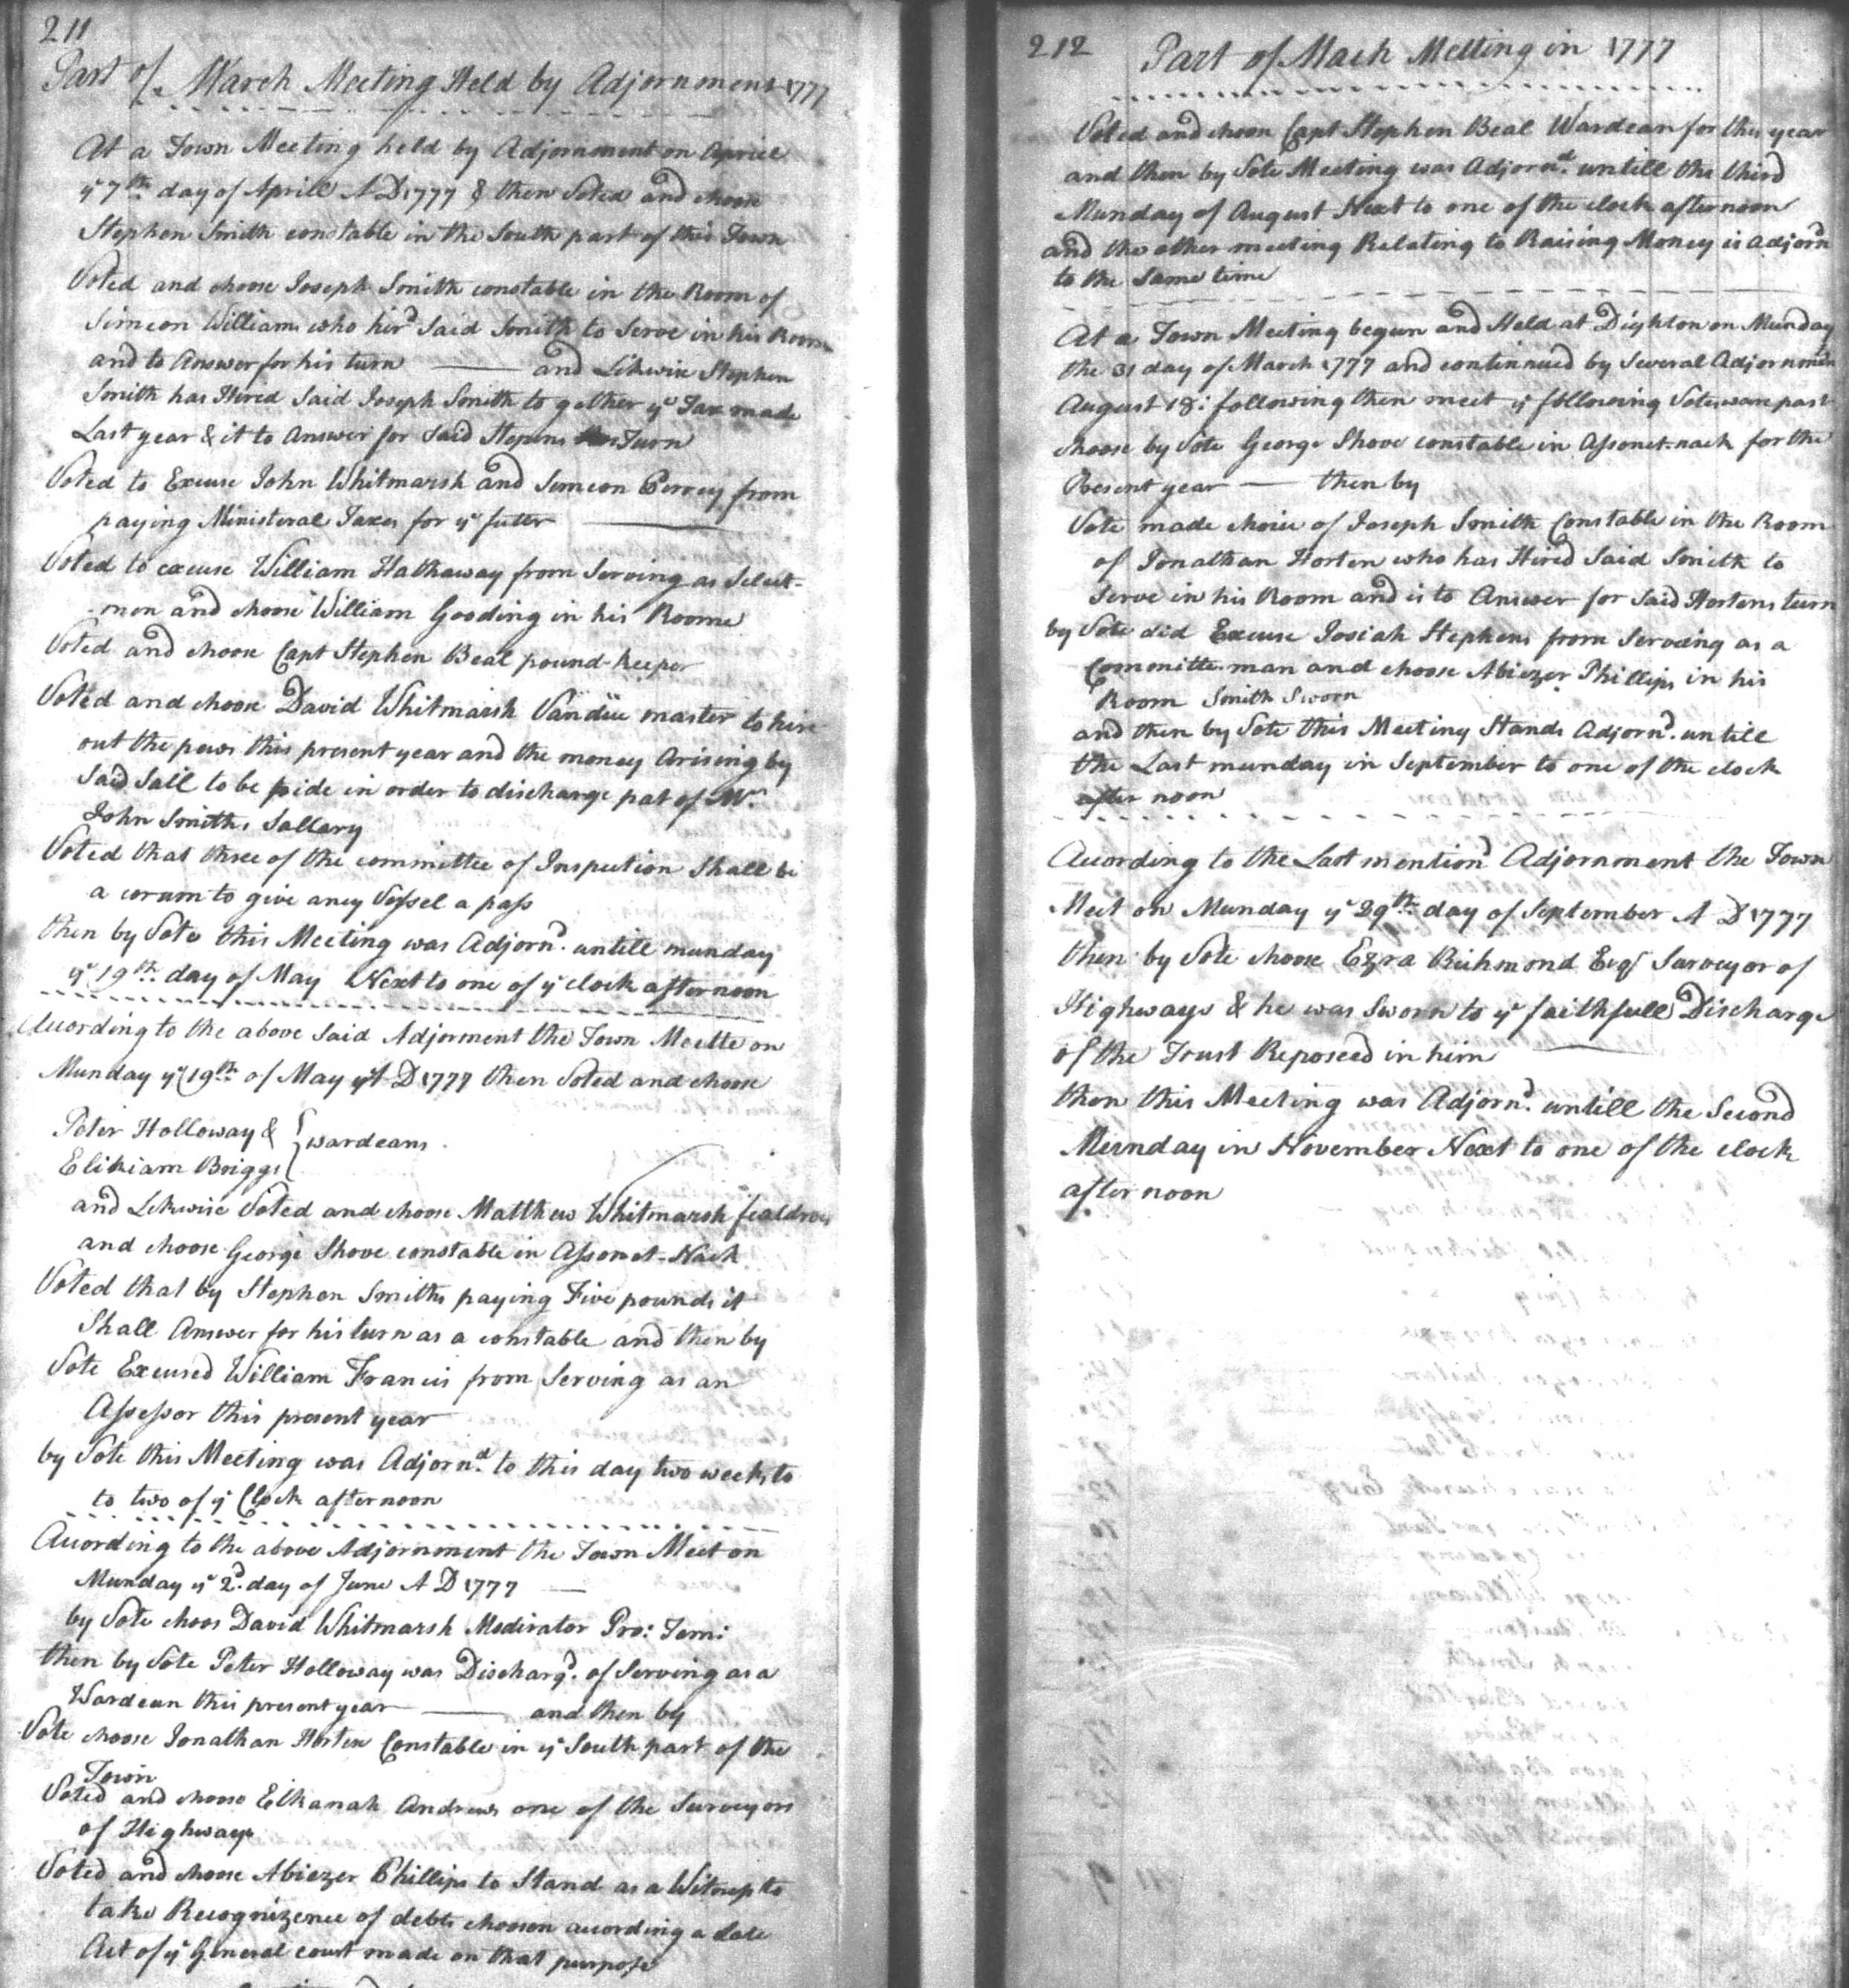 211
Part of March Meeting Held by Adjornment 1777
At a Town Meeting held by Adjornment on Apriel
ye 7th day of Aprill A D 1777 & then Voted and choose
Stephen Smith constable in the South part of this Town
Voted and choose Joseph Smith constable in the Room of
Simeon Williams who hird said Smith to Serve in his Room
and to Answer for his turn — and Likwise Stephen
Smith has Hired Said Joseph Smith to gether ye Tax made
Last year & it to Answer for Said Stepens Turn
Voted to Excuse John Whitmarsh and Simeon Perrey from
paying Ministeral Taxes for ye futer
Voted to excuse William Hathaway from Serving as Select-
men and choose William Gooding in his Roome
Voted and choose Capt Stephen Beal pound-keeper
Voted and choose David Whitmarsh Vandue master to hire
out the pews this present year and the money Arising by
Said Sail to be pide in order to discharge pat of Mr
John Smiths Sallary
Voted that three of the committee of Inspection Shall be
a corum to give aney Vessel a pass
then by Vote this Meeting was Adjornd. untill munday
ye 19th day of May Next to one of ye clock afternoon
Acording to the above Said Adjorment the Town Meette on
Munday ye 19th of May A D 1777 then Voted and choose
Peter Holloway &
Elikiam Briggs } wardeans
and Likwise Voted and choose Matthew Whitmarsh fealdrive
and choose George Shove constable in Assonet-Nack
Voted that by Stephen Smiths paying Five pounds it
Shall Answer for his turn as a constable and then by
Vote Excused William Francis from Serving as an
Assessor this present year
by Vote this Meeting was Adjornd to this day two weeks to
to two of ye Clock afternoon
Acording to the above Adjornment the Town Meet on
Munday ye 2d. day of June A D 1777
by Vote choos David Whitmarsh Modirator Pro: Tem:
then by Vote Peter Holloway was Dischargd. of Serving as a
Wardean this present year — and then by
Vote choose Jonathan Horten Constable in ye South part of the
Town
Voted and choose Elkanah Andrews one of the Surveyors
of Highways
Voted and choose Abiezer Phillips to Stand as a Witness to
take Recognizence of debts choosen acording a late
Act of ye General court made on that purpose
212
Part of Mach Metting in 1777
Voted and choose Capt Stephen Beal Wardean for this year
and then by Vote Meeting was Adjornd. untill the third
Munday of August Next to one of the clock afternoon
and the other meeting Relating to Raising Money is adjornd
to the Same time
At a Town Meeting begun and Held at Dighton on Munday
the 31 day of March 1777 and continued by Several Adjornments
August 18: following then meet ye following Votes ware past
choose by Vote George Shove constable in Assonet-nack for the
Present year — then by
Vote made choice of Joseph Smith Constable in the Room
of Jonathan Horten who has Hired Said Smith to
Serve in his Room and is to Answer for Said Hortens turn
by Vote did Excuse Josiah Stephens from Serveing as a
Committe man and choose Abiezer Phillips in his
Room Smith Sworn
and then by Vote this Meeting Stands Adjornd. untill
the Last munday in September to one of the clock
after noon
Acording to the Last mentiond Adjornment the Town
Meet on Munday ye 29th day of September A D 1777
then by Vote choose Ezra Richmond Esqr Surveyor of
Highways & he was Sworn to ye faithfull Discharge
of the Trust Reposeed in him
then this Meeting was Adjornd. untill the Second
Munday in November Next to one of the clock
after noon